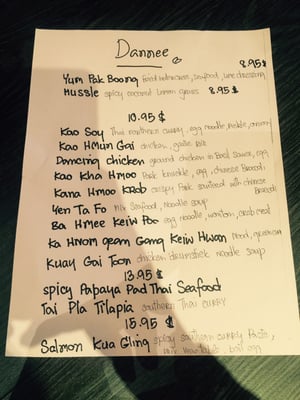 Dannee
8.95 $
Yum Pak Boong seafood, lime dressing
Mussle spicy coconut lemon grass 8.95 $
10.95 $
Kao Soy Thai northern curry, egg noodle, pickle,
Kao HMun Gai chicken, garlic rice
Dancing chicken ground chicken in Basil sauce, egg
Kao Kha Hmoo Pork knuckle, egg, chinese Broccoli
Kana Hmoo KRob crispy Pork sauteed with chinese Broccoli
Yen Ta Fo mix Seafood, noodle soup
Ba Hmee Keiw Poo egg noodle, wonton, crab meat
Ka Hnom Jeen Gang Keiw Hwan
Kuay Gai Toon chicken drumstick noodle soup
13.95 $
spicy Papaya Pad Thai Seafood
Tai Pla Tilapia southern Thai curry
15.95 $
Salmon Kua Gling spicy southern curry Paste,
boil egg